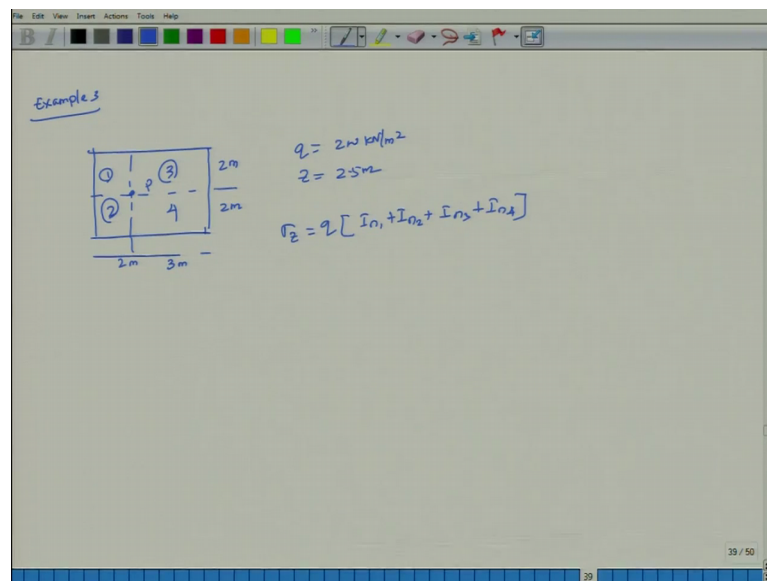 File Edit View Insert Actions Tools Help
Example 3
① ③ 2m
P
② 4 2m
2m 3m
q = 200 kN/m²
z = 2.5m
σz = q [ In₁ + In₂ + In₃ + In₄ ]
39 / 50
39